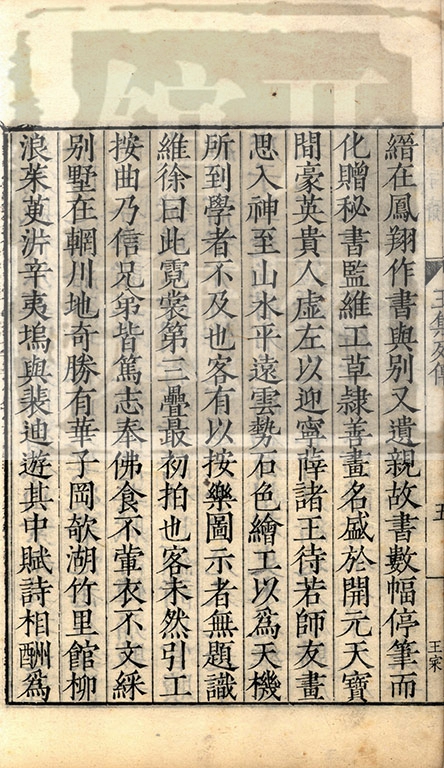 縉在鳳翔作書與別又遺親故書數幅停筆而
化贈秘書監維工草隸善畫名盛於開元天寶
間豪英貴人虛左以迎寧薛諸王待若師友畫
思入神至山水平遠雲勢石色繪工以爲天機
所到學者不及也客有以按樂圖示者無題識
維徐曰此霓裳第三疊最初拍也客未然引工
按曲乃信兄弟皆篤志奉佛食不葷衣不文綵
別墅在輞川地奇勝有華子岡欹湖竹里館柳
浪茱萸沜辛夷塢與裴迪遊其中賦詩相酬爲
五
王宷